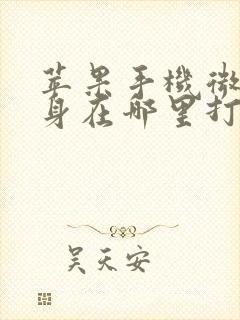 苹果手機微
身在哪里打
吴天安